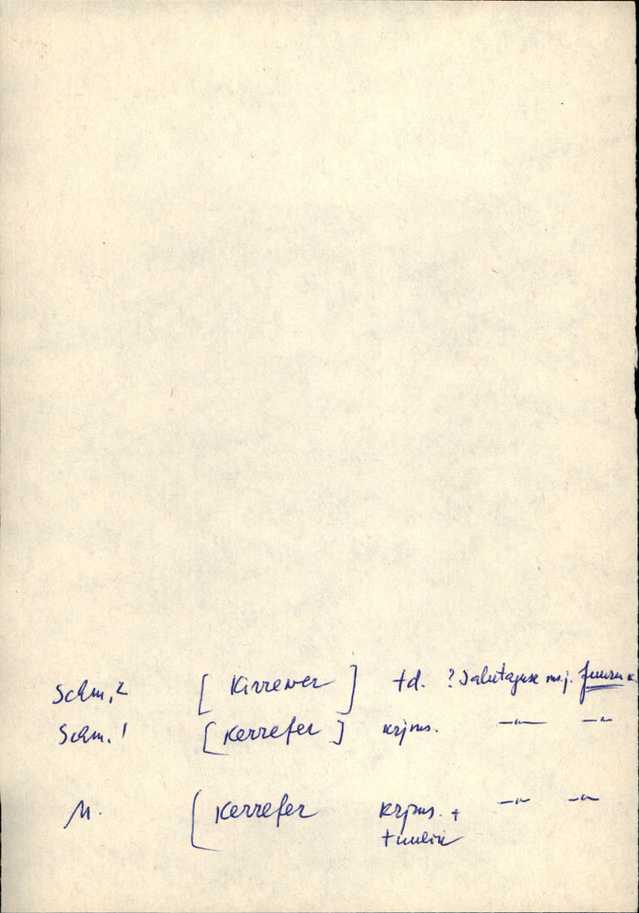 Schm. 2 [Kirrewer] td. ? Jalutajase maj.
Schm. 1 [Kerrefer] krjms. —"— —"—
M. [Kerrefer krjms. + —"— —"—
tuulik